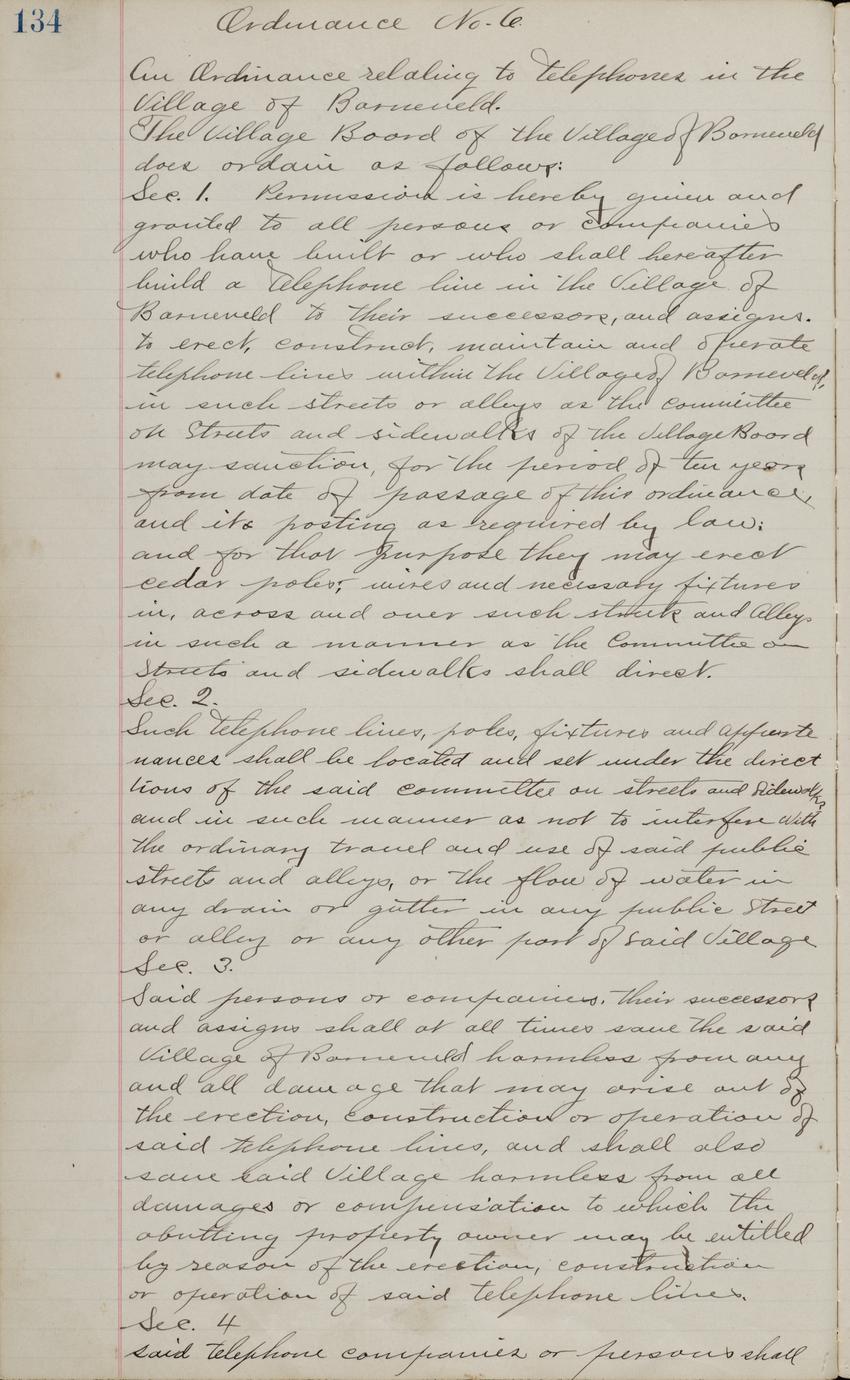 134
Ordinance No. 6.
An Ordinance relating to telephones in the
Village of Barneveld.
The Village Board of the Village of Barneveld
does ordain as follows:
Sec. 1. Permission is hereby given and
granted to all persons or companies
who have built or who shall hereafter
build a Telephone line in the Village of
Barneveld to their successors, and assigns.
to erect, construct, maintain and operate
telephone lines within the Village of Barneveld,
in such streets or alleys as the committee
on Streets and sidewalks of the Village Board
may sanction, for the period of ten years
from date of passage of this ordinance,
and its posting as required by law;
and for that purpose they may erect
cedar poles; wires and necessary fixtures
in, across and over such streets and Alleys
in such a manner as the Committee on
Streets and sidewalks shall direct.
Sec. 2.
Such telephone lines, poles, fixtures and appurte
nances shall be located and set under the direct
tions of the said committee on streets and Sidewalks,
and in such manner as not to interfere with
the ordinary travel and use of said public
streets and alleys, or the flow of water in
any drain or gutter in any public Street
or alley or any other part of said Village
Sec. 3.
Said persons or companies, their successors
and assigns shall at all times save the said
Village of Barneveld harmless from any
and all damage that may arise out of
the erection, construction or operation of
said telephone lines, and shall also
save said Village harmless from all
damages or compensation to which the
abutting property owner may be entitled
by reason of the erection, construction
or operation of said telephone lines.
Sec. 4
said telephone companies or persons shall